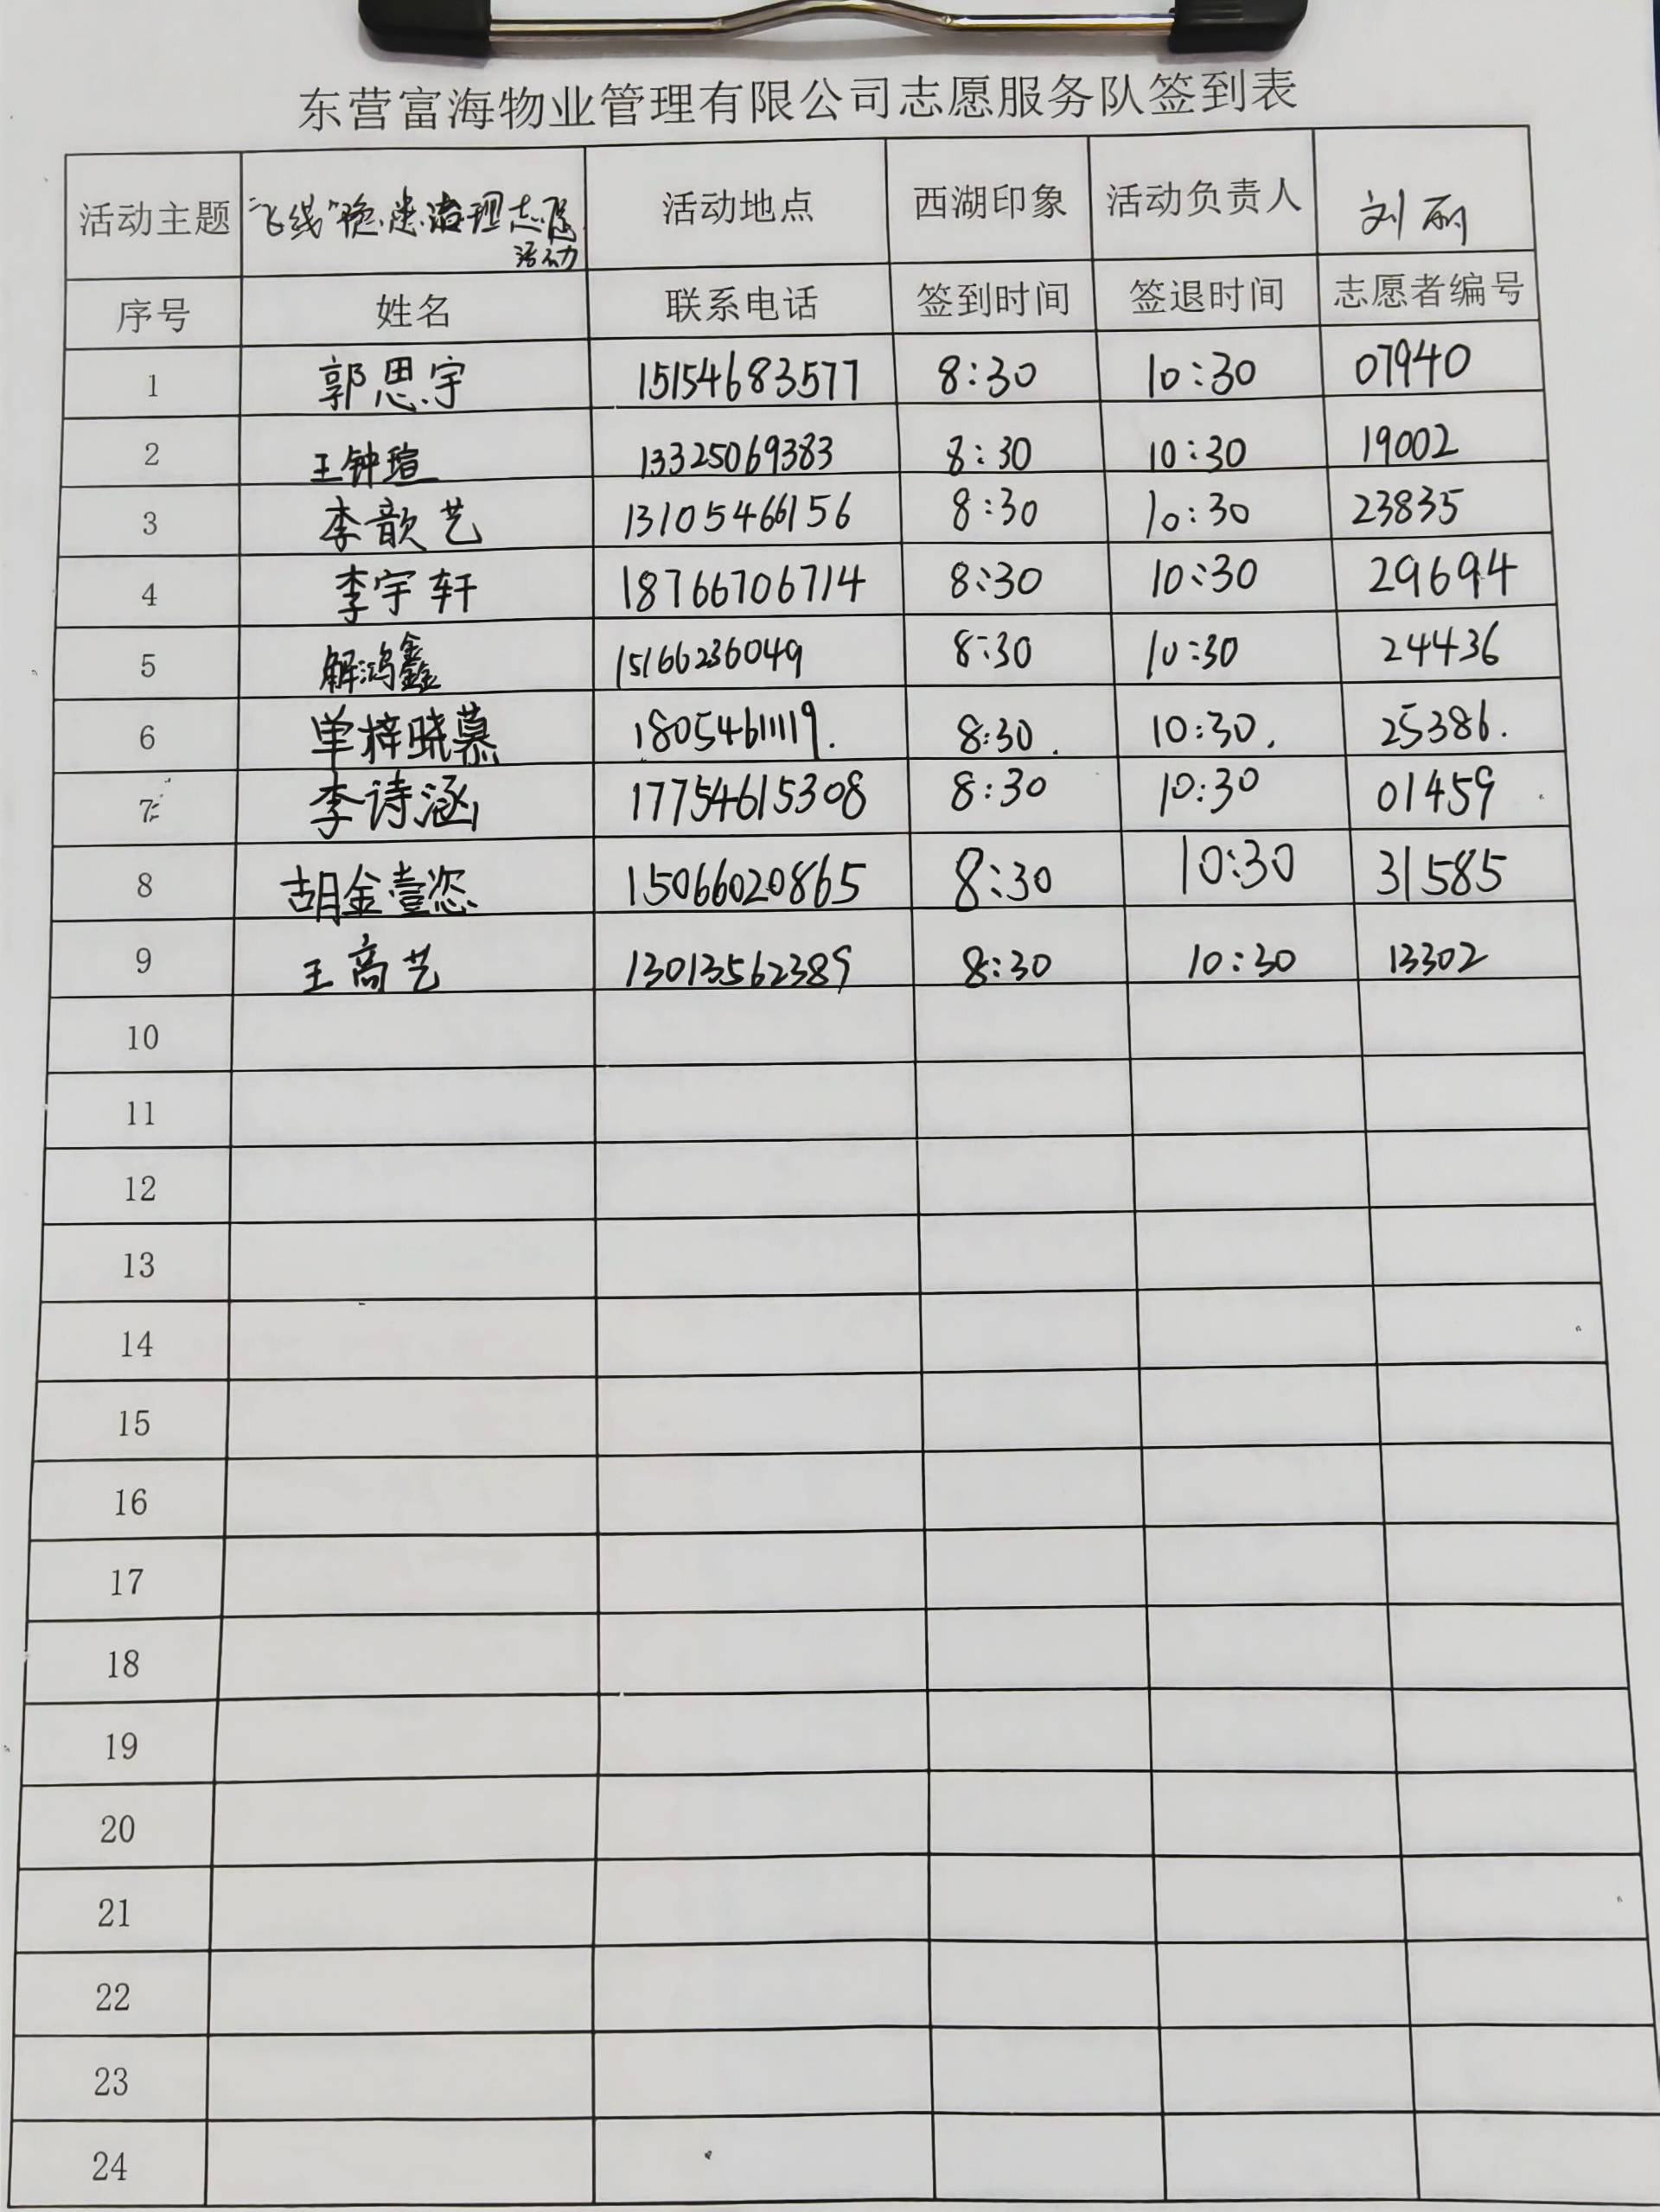 东营富海物业管理有限公司志愿服务队签到表
活动主题 "飞线"隐患治理志愿活动 活动地点 西湖印象 活动负责人 刘丽
序号 姓名 联系电话 签到时间 签退时间 志愿者编号
1 郭思宇 15154683577 8:30 10:30 07940
2 王钟瑄 13325069383 8:30 10:30 19002
3 李歆艺 13105466156 8:30 10:30 23835
4 李宇轩 18766706714 8:30 10:30 29694
5 解鸿鑫 15166236049 8:30 10:30 24436
6 单梓晓慕 18054611119. 8:30. 10:30. 25386.
7 李诗涵 17754615308 8:30 10:30 01459
8 胡金壹恣 15066020865 8:30 10:30 31585
9 王商艺 13013562389 8:30 10:30 13302
10
11
12
13
14
15
16
17
18
19
20
21
22
23
24